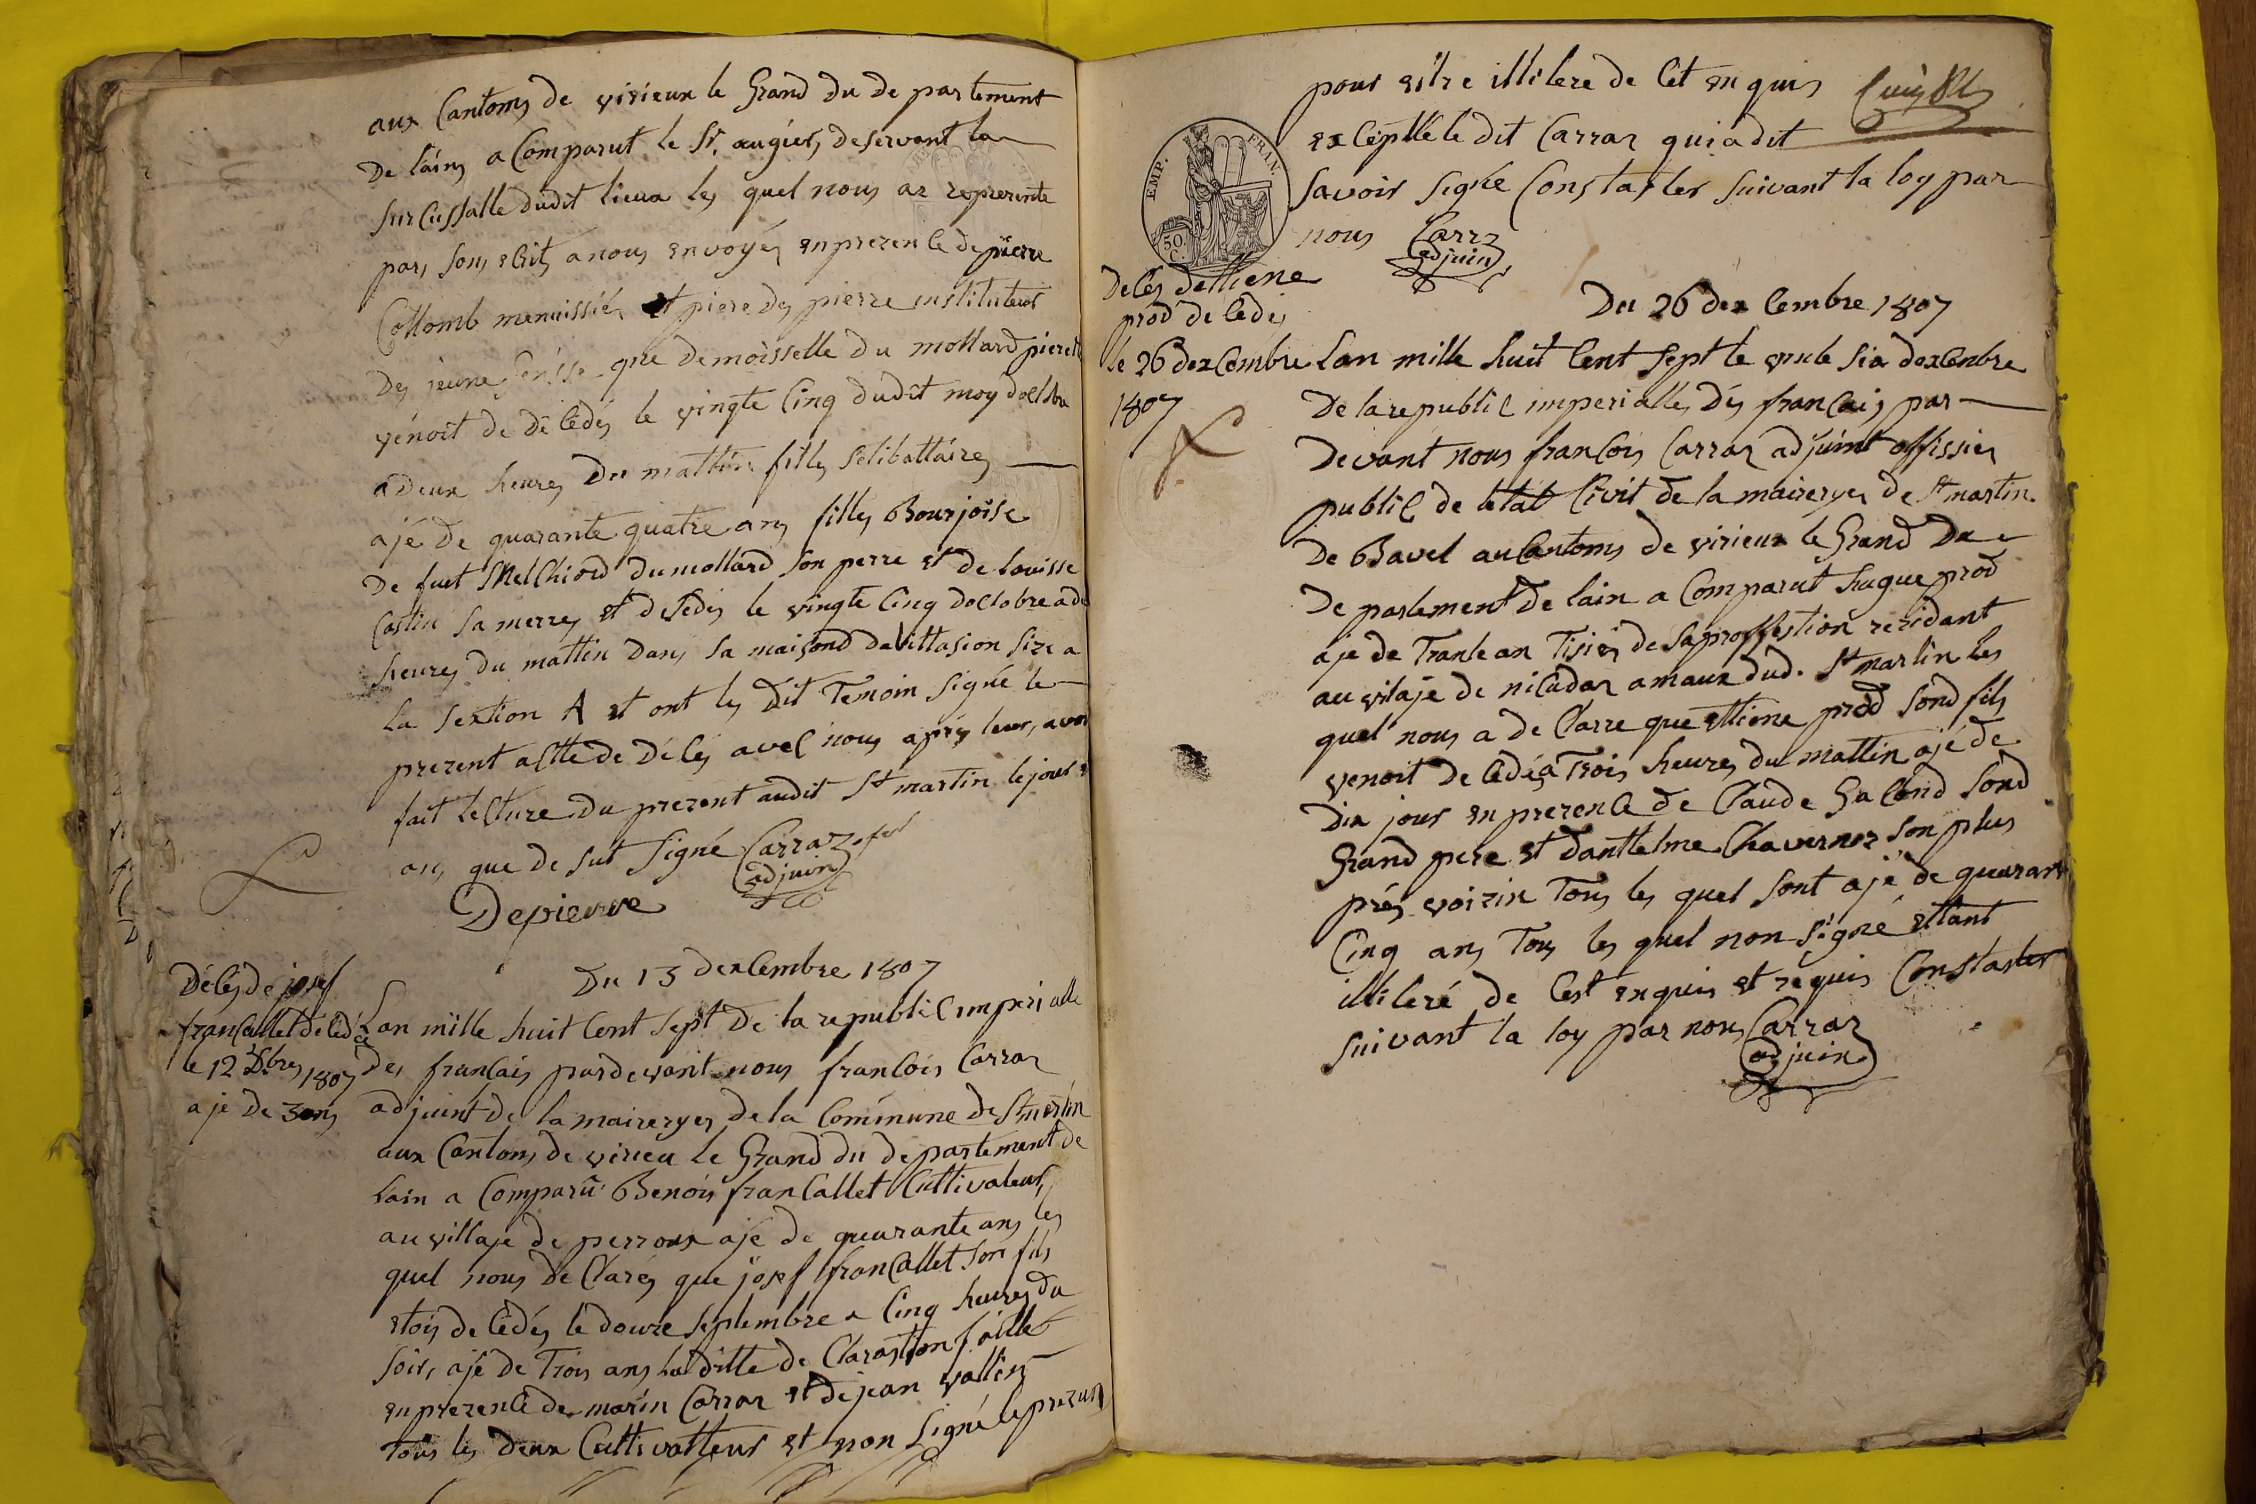 aux Cantons de virieux le Grand du de partement
De lains a Comparut le Sr. augiers, deservant la
sur Cussalle dudit lieux les quel nous ar reprezente
pars sons ecrits a nous envoyés en prezence de pierre
Collomb menuissiés et piere Des pierre instituteur
Des jeune que Demoisselle du mollard pierette
venoit de décédés le vingte Cinq dudit moy doctobre
a deux heures du mattin filles Selibattaires
ajé de quarante quatre ans filles Bourjoise
De fuet Melchiord Dumollard Son perre et de Louisse
Costin Sa merre, et desédés le vingte Cinq doctobre a de
heures du mattin Dans Sa maisond dabittasion Size a
La Sextion A et ont les Dit Temoin Signé le
prezent actte de Décés avec nous aprés leurs, avoir
fait lecture du prezent audit St martin le jour et
an, que de Sut Signé Carraz
adjuin
Depierre
Décés de josef
francallet décédé
le 12 Xbre 1807
aje de 3 ans
Du 13 dexcembre 1807
Lan mille huit Cent Sept De la republic imperialle
Des francais pardevant nous francois Carraz
adjuint de la maireryes de la Commune de St martin
aux Cantons de virieu Le Grand du departement de
Lain a Comparu Benois francallet Cultivateur
au villaje de perroux aje de quarante ans les
quel nous de Clarés que josef francallet Son fils
etois de cédés le douze Septembre a Cinq heures du
Soir, ajé de Trois ans Laditte de Clarastion faitte
en prezence de marin Carraz et de jean vallin
Tous les deux Cultivatteur et non Signé le prezent
pour estre illitere de Cet enquis
exceptté le dit Carraz qui a dit
savoir Signé Constaxter Suivant la loy par
nous Carraz
adjuin
EMP. FRAN.
50 C.
Deces dettiene
prod de cédé
le 26 dexcembre
1807
Du 26 dexcembre 1807
Lan mille huit Cent Sept le vinte Six dexcenbre
De la republic imperialles Dés francais par
Devant nous francois Carraz adjuint offissier
public de letat Civit de la maireryes de St martin
De Bavel au Cantoms de virieux le Grand Du
De partement De lain a Comparut hugue prod
aje de Trante an Tisiés de Saproffestion rezidant
au vilaje de nicudaz amaux dud. St martin les
quel nous a de Clarre que ettiene prod Sond fils
venoit de cédé a Trois heures du mattin ajé de
Dix jour en prezence de Claude Gacond Sond
Grand pere et dantelme Chavernoz Son plus
prés voizin Tous les quel Sont ajé de quarante
Cinq ans Tous les quel non Signé ettant
illiteré de Cest enquis et requis Constaxter
Suivant la loy par nous Carraz
adjuin